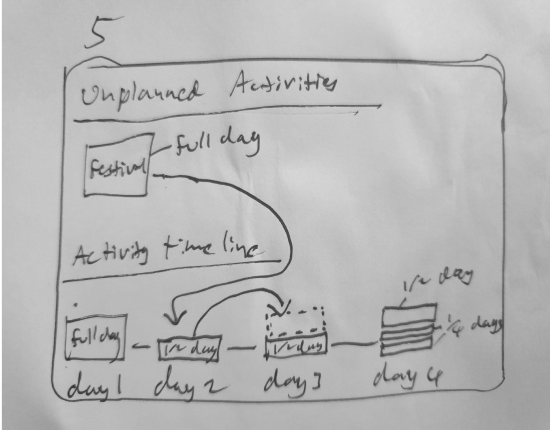 5
Unplanned Activities
Festival
full day
Activity timeline
1/2 day
1/4 days
full day
1/2 day
1/2 day
day 1
day 2
day 3
day 4